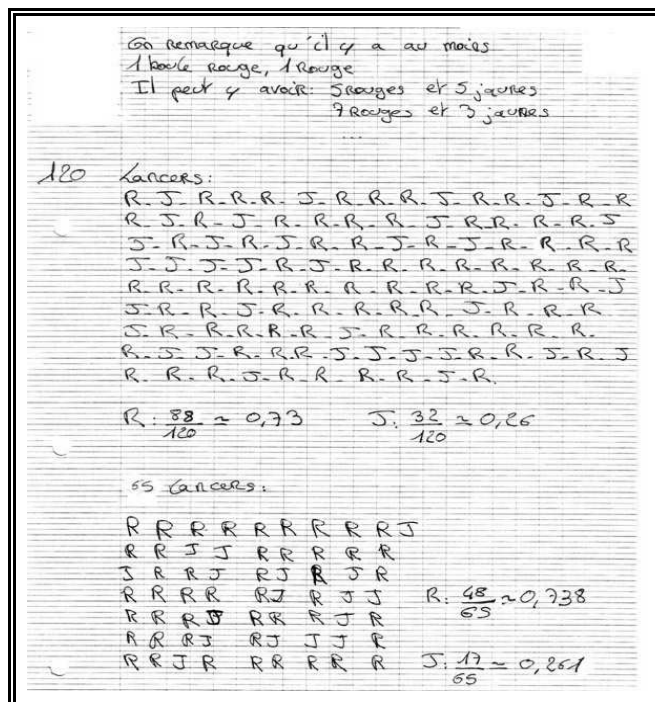 On remarque qu'il y a au moins
1 boule rouge, 1 Rouge
Il peut y avoir: 5 Rouges et 5 jaunes
7 Rouges et 3 jaunes
...
120 Lancers:
R_J_R_R_R_J_R_R_R_J_R_R_J_R_R
R_J_R_J_R_R_R_R_J_R R_R_R J
J_R_J_R_J_R_R_J_R_J_R_R_R_R
J_J_J_J_R_J_R_R_R_R_R_R_R_R_
R_R_R_R_R_R_R_R_R_R_J_R_R_J
J_R_R_J_R_R_R_R_R_J_R_R_R
J_R_R_R_R_R_J_R_R_R_R_R_R_
R_J_J_R_R_R_J_J_J_J_R_R_J_R_J
R_R_R_J_R_R_R_R_J_R.
R: 88/120 ≈ 0,73 J: 32/120 ≈ 0,26
65 Lancers:
R R R R R R R R R J
R R J J R R R R R
J R R J R J R J R
R R R R R J R J J R: 48/65 ≈ 0,738
R R R J R R R J R
R R R J R J J J R
R R J R R R R R R J: 17/65 ≈ 0,261